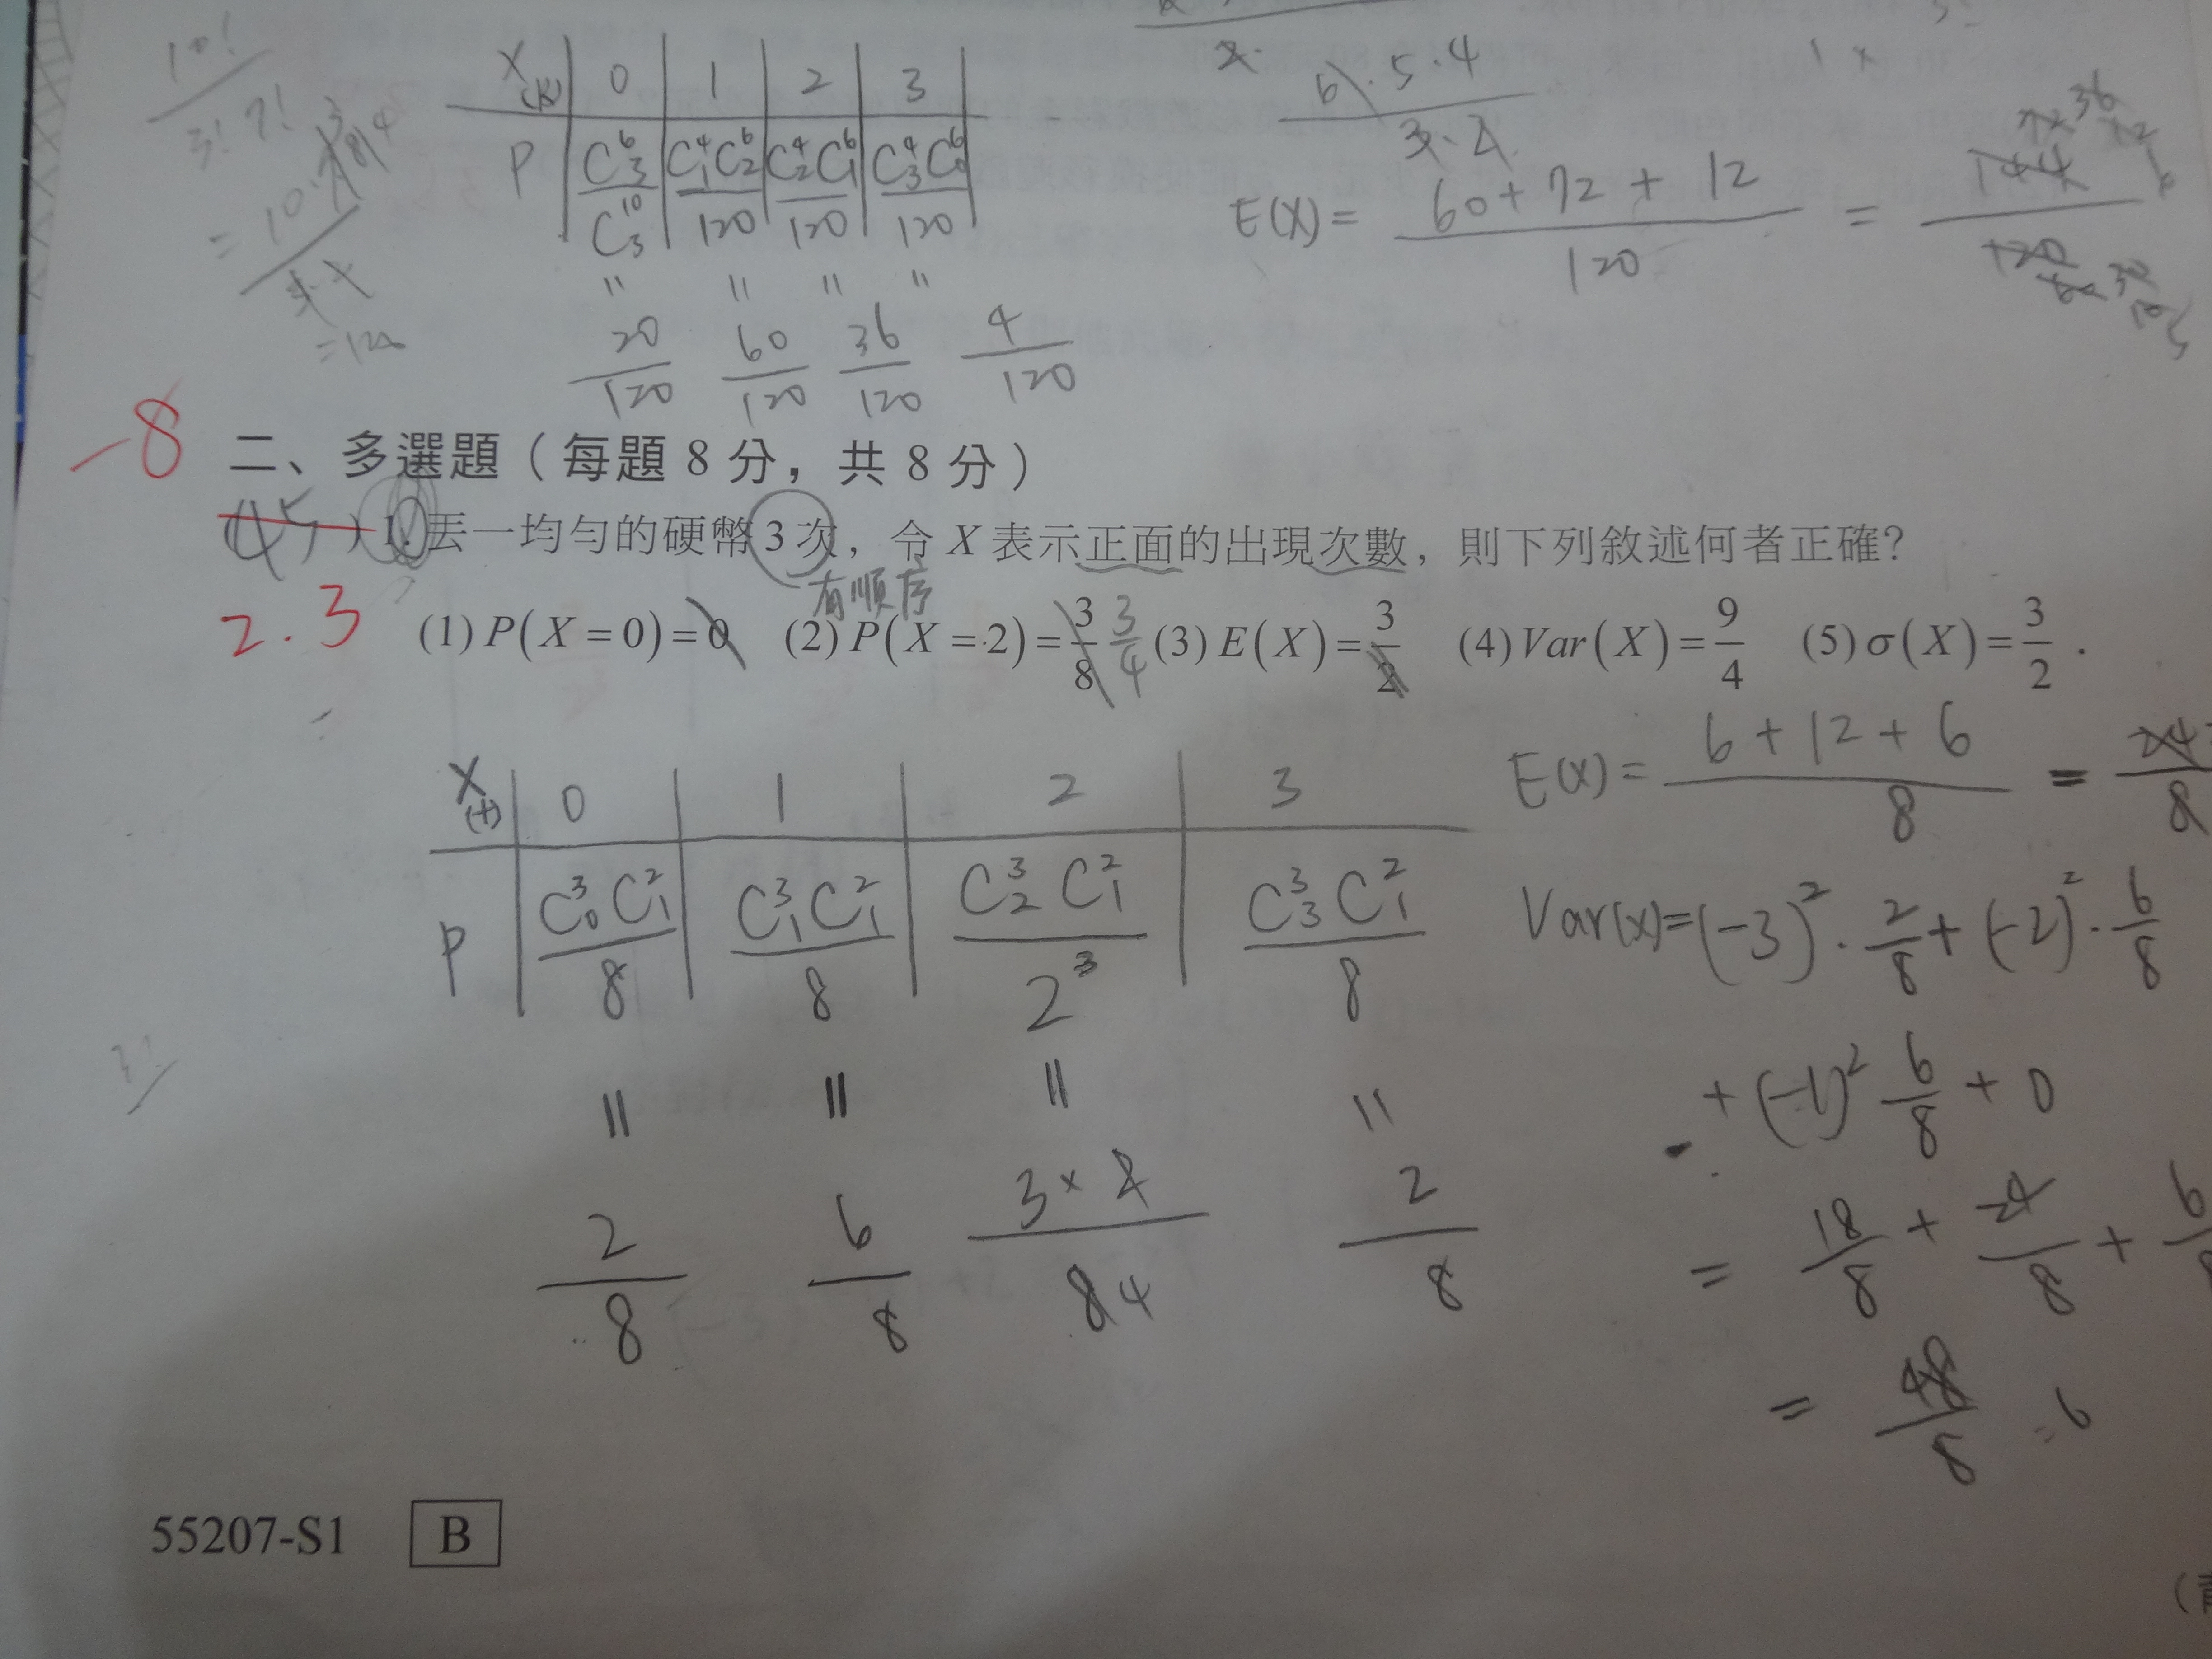 X (k) 0 1 2 3
P C⁶₃/C¹⁰₃ C⁴₁C⁶₂/120 C⁴₂C⁶₁/120 C⁴₃C⁶₀/120
= = = =
20/120 60/120 36/120 4/120
10!/3!7!
=120
6·5·4/3·2
E(X)= 60+72+12/120 = 144/120
-8
二、多選題（每題 8 分，共 8 分）
(45)1. 丟一均勻的硬幣 3 次，令 X 表示正面的出現次數，則下列敘述何者正確？
有順序
2.3
(1) P(X=0)=0 (2) P(X=2)=3/8 3/4 (3) E(X)=3/2 (4) Var(X)=9/4 (5) σ(X)=3/2．
X (+) 0 1 2 3
P C³₀C²₁/8 C³₁C²₁/8 C³₂C²₁/2³ C³₃C²₁/8
= = = =
2/8 6/8 3×2/8 4 2/8
E(X)= 6+12+6/8 = 24/8
Var(X)=(-3)²·2/8+(-2)²·6/8
+(-1)² 6/8+0
= 18/8 + 24/8 + 6/8
= 48/8 =6
3!
55207-S1 B